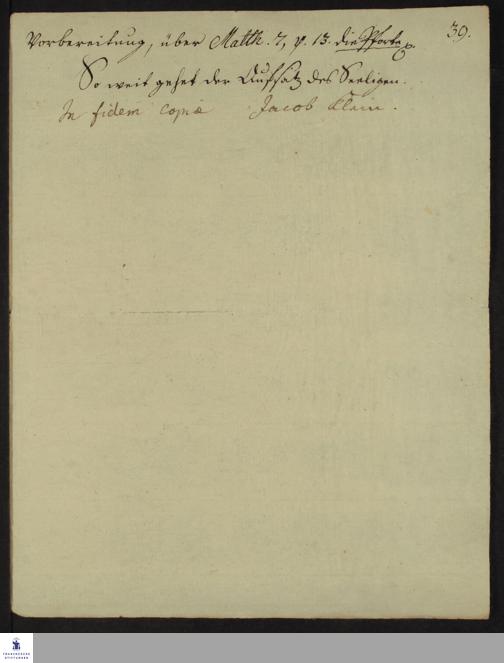 39.
Vorbereitung, über Matth. 7, v. 13. die Pforte p.
So weit gehet der Aufsatz des Seeligen.
In fidem copiæ Jacob Klein.
FRANCKESCHE
STIFTUNGEN